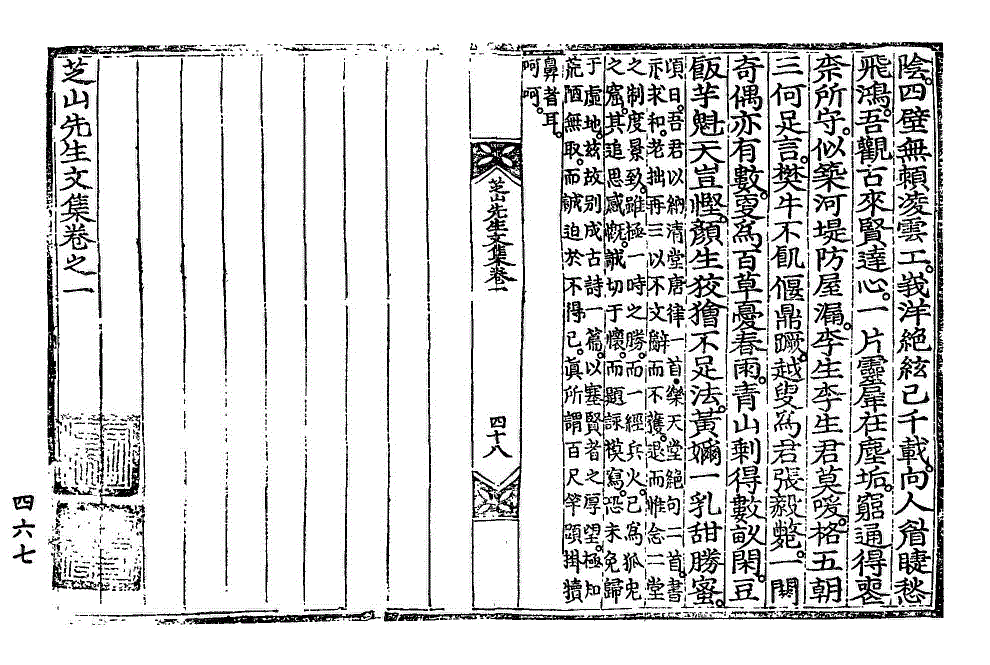 陰。四壁無賴凌雲工。峩洋絶絃已千載。向人眉睫愁
飛鴻。吾觀古來賢達心。一片靈犀在塵垢。窮通得喪
柰所守。似築河堤防屋漏。李生李生君莫嗳。格五朝
三何足言。樊牛不飢偃鼎蹶。越叟爲君張毅斃。一閴
奇偶亦有數。更爲百草憂春雨。靑山剩得數畝閑。豆
飯芋魁天豈慳。顏生狡獪不足法。黃嬭一乳甜勝蜜。
頃日。吾君以納淸堂唐律一首。樂天堂絶句一首。書
示求和。老拙再三以不文辭而不獲。退而惟念二堂
之制度景致。雖極一時之勝。而一經兵火。已爲狐兎
之窟。其追思感慨。誠切于懷。而題詠模寫。恐未免歸
于虛地。玆故別成古詩一篇。以塞賢者之厚望。極知
荒陋無取。而誠迫於不得已。眞所謂百尺竿頭掛犢
鼻者耳。
呵呵。
芝山先生文集卷一
四十八
芝山先生文集卷之一
四六七